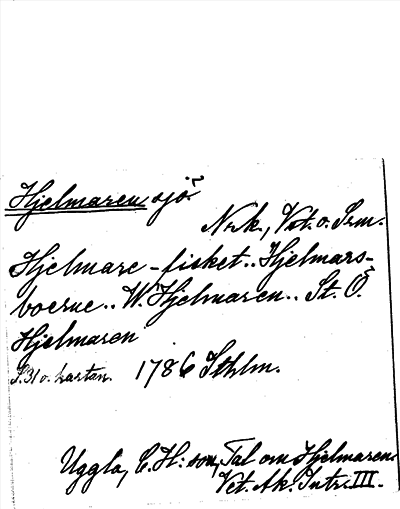 Hjelmaren, sjö.
Nrk., Vst. o. Srm.
Hjelmare-fisket.. Hjelmars-
boerne.. W. Hjelmaren.. St. Ö.
Hjelmaren
S. 31 o. kartan. 1786 Sthlm.
Uggla, C. H:son, Tal om Hjelmaren.
Vet. Ak. Intr. III.